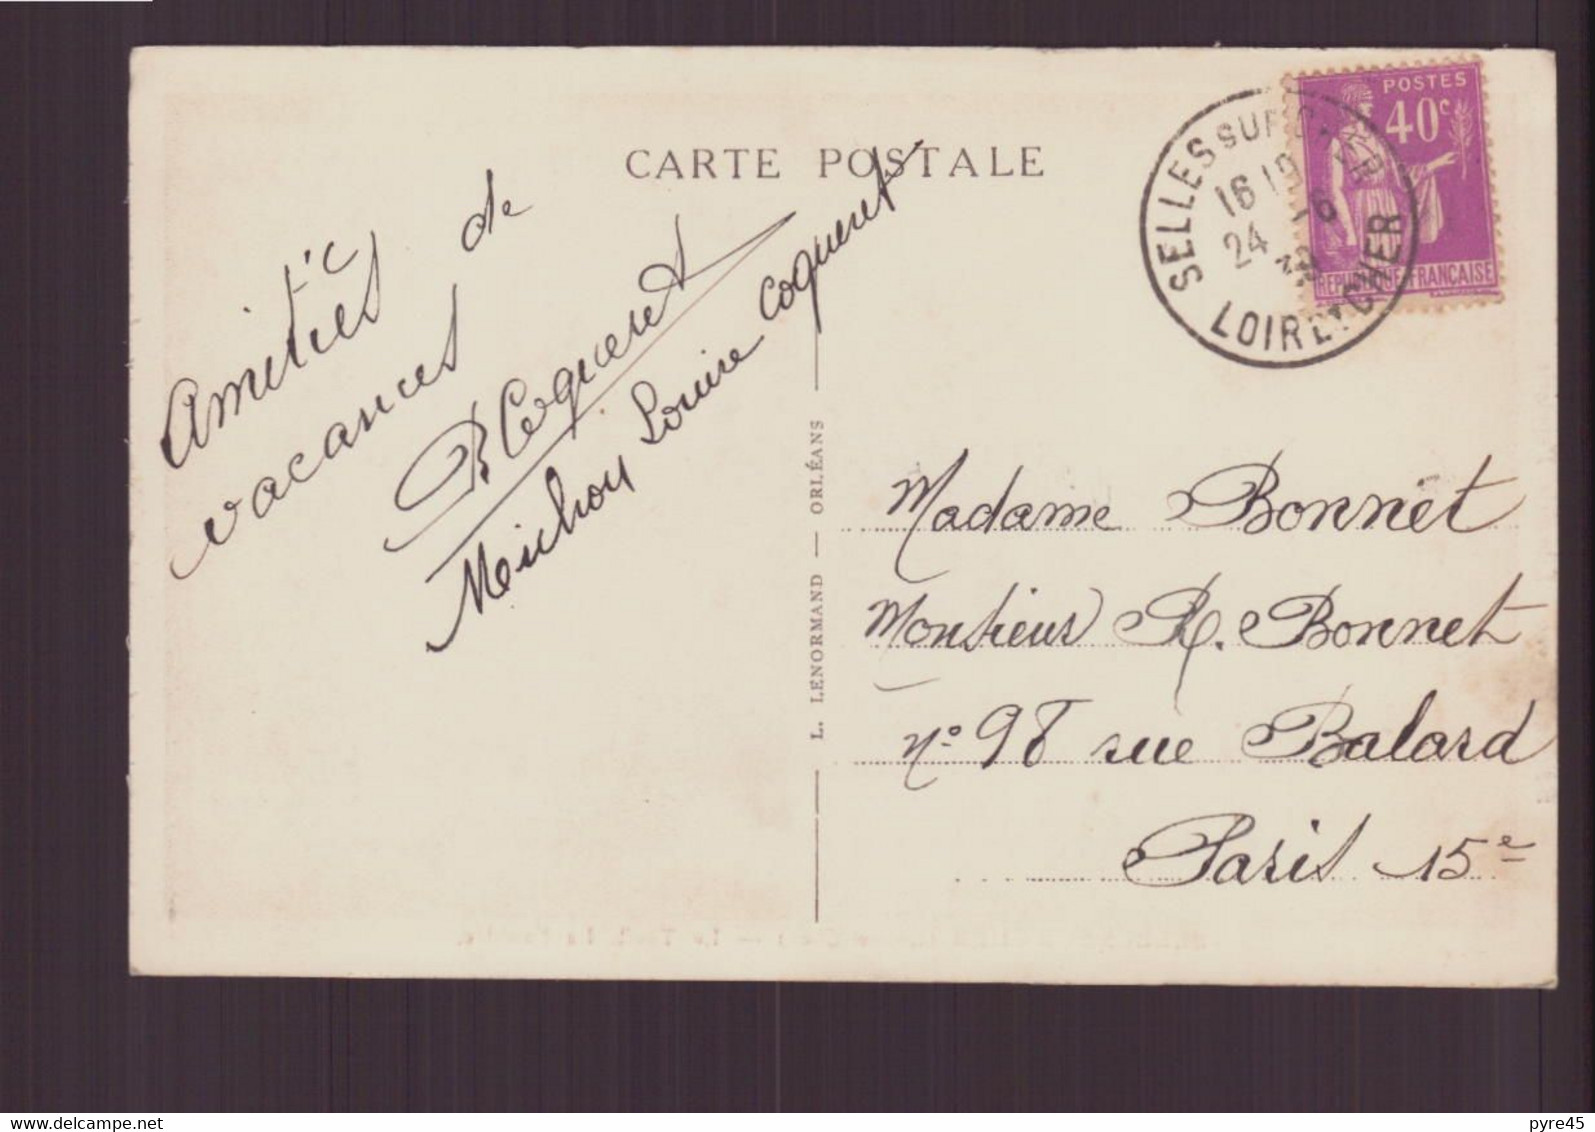 CARTE POSTALE
POSTES
40c
REPUBLIQUE FRANÇAISE
SELLES SUR CHER
16 19
24 - 6
LOIR ET CHER
Amitiés de
vacances
B Coqueret
Meichou Louise Coqueret
L. LENORMAND — ORLÉANS
Madame Bonnet
Monsieur R. Bonnet
n° 98 rue Balard
Paris 15e
www.delcampe.net
pyre45